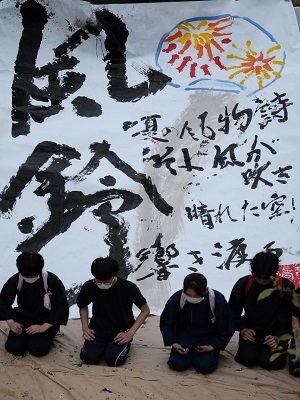 風鈴
夏の風物詩
そよ風が吹き
晴れた空に
響き渡る